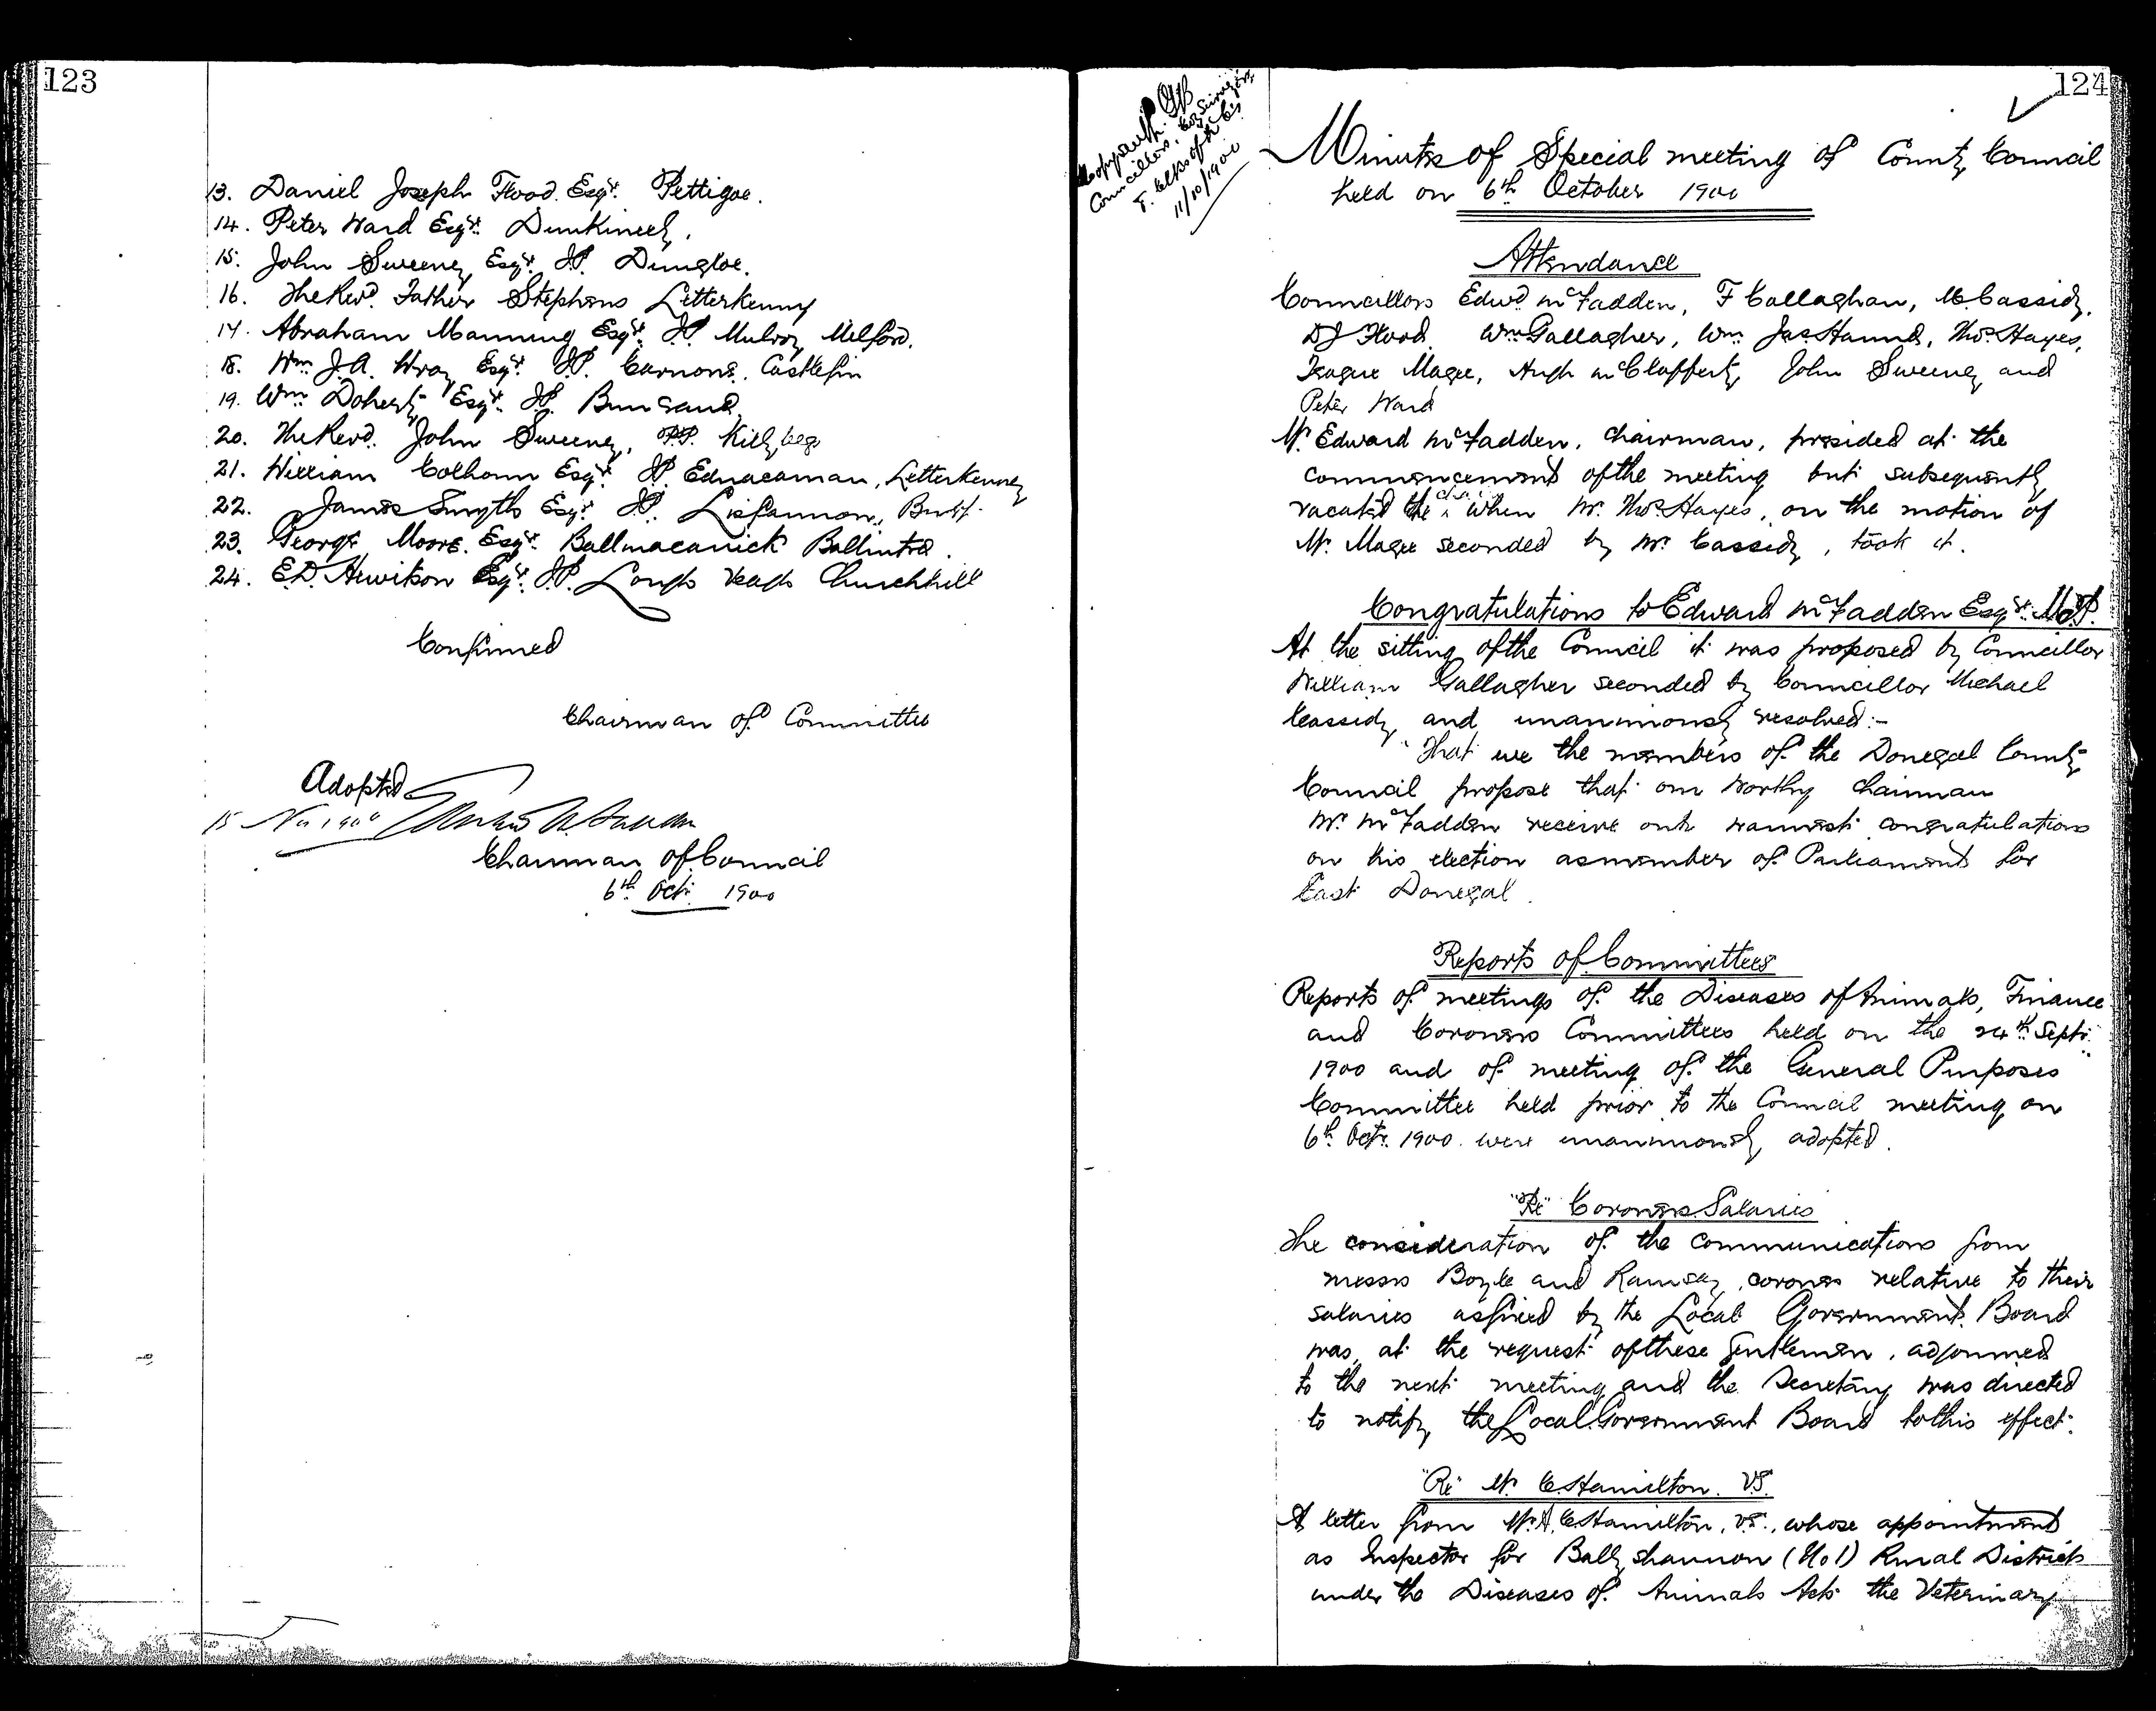 123
13. Daniel Joseph Flood Esqr. Pettigoe.
14. Peter Ward Esqr. Dunkineely.
15. John Sweeney Esqr. JP. Dungloe.
16. The Revd. Father Stephens Letterkenny
17. Abraham Manning Esqr. JP Mulroy Milford.
18. Wm. J.A. Wray Esqr. JP. Carnone, Castlefin
19. Wm. Doherty Esqr. JP. Buncrana
20. The Revd. John Sweeney, P.P. Killybegs
21. William Colhoun Esqr. JP. Ednacarnan, Letterkenny
22. James Smyth Esqr. JP. Lisfannon, Burt.
23. George Moore Esqr. Ballmacanick Ballintra.
24. E.D. Hewitson Esqr. JP. Lough Veagh Churchhill
Confirmed
Chairman of Committee
Adopted
15 Nov 1900 Edward McFadden
Chairman of Council
6th Oct. 1900
124
Councillors, Co. Surveyors,
11/10/1900
Minutes of Special meeting of County Council
held on 6th October 1900
Attendance
Councillors Edwd McFadden, F Callaghan, M. Cassidy,
DJ Flood, Wm. Gallagher, Wm. Jas. Hanna, Thos. Hayes,
Teague Magee, Hugh McClafferty, John Sweeney and
Peter Ward
Mr. Edward McFadden, Chairman, presided at the
commencement of the meeting but subsequently
vacated the chair when Mr. Thos. Hayes, on the motion of
Mr. Magee seconded by Mr. Cassidy, took it.
Congratulations to Edward McFadden Esqr. M.P.
At the sitting of the Council it was proposed by Councillor
William Gallagher seconded by Councillor Michael
Cassidy and unanimously resolved:-
"That we the members of the Donegal County
Council propose that our worthy Chairman
Mr. McFadden receive our warmest congratulations
on his election as member of Parliament for
East Donegal.
Reports of Committees
Reports of meetings of the Diseases of Animals, Finance
and Coroners Committees held on the 24th Septr.
1900 and of meeting of the General Purposes
Committee held prior to the Council meeting on
6th Octr. 1900 were unanimously adopted.
"Re" Coroners Salaries
The consideration of the communications from
messrs Boyle and Ramsay, coroners relative to their
salaries as fixed by the Local Government Board
was, at the request of these Gentlemen, adjourned
to the next meeting and the Secretary was directed
to notify the Local Government Board to this effect.
"Re" Mr. C. Hamilton. V.S.
A letter from Mr. A. C. Hamilton, V.S., whose appointment
as Inspector for Ballyshannon (No 1) Rural District
under the Diseases of Animals Acts the Veterinary